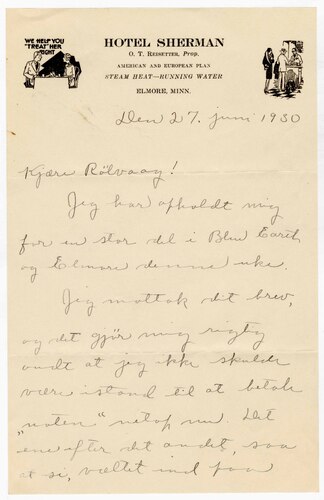 WE HELP YOU
"TREAT" HER
RIGHT
HOTEL SHERMAN
O. T. REISETTER, Prop.
AMERICAN AND EUROPEAN PLAN
STEAM HEAT—RUNNING WATER
ELMORE, MINN.
Den 27. juni 1930
Kjære Rölvaag!
Jeg har opholdt mig
for en stor del i Blue Earth
og Elmore denne uke.
Jeg mottok dit brev,
og det gjør mig rigtig
ondt at jeg ikke skulde
være istand til at betale
„noten" netop nu. Det
ene efter det andet, saa
at si, væltet ind paa